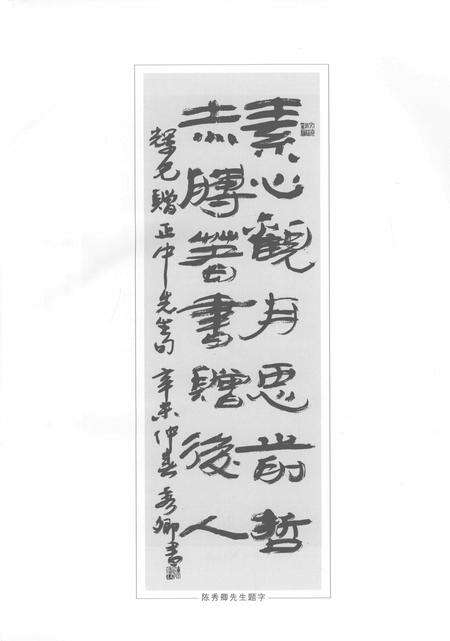 素心觀月思前哲
赤膊著書贈後人
輝兄贈正中先生句 辛未仲春 秀卿書
陈秀卿先生题字